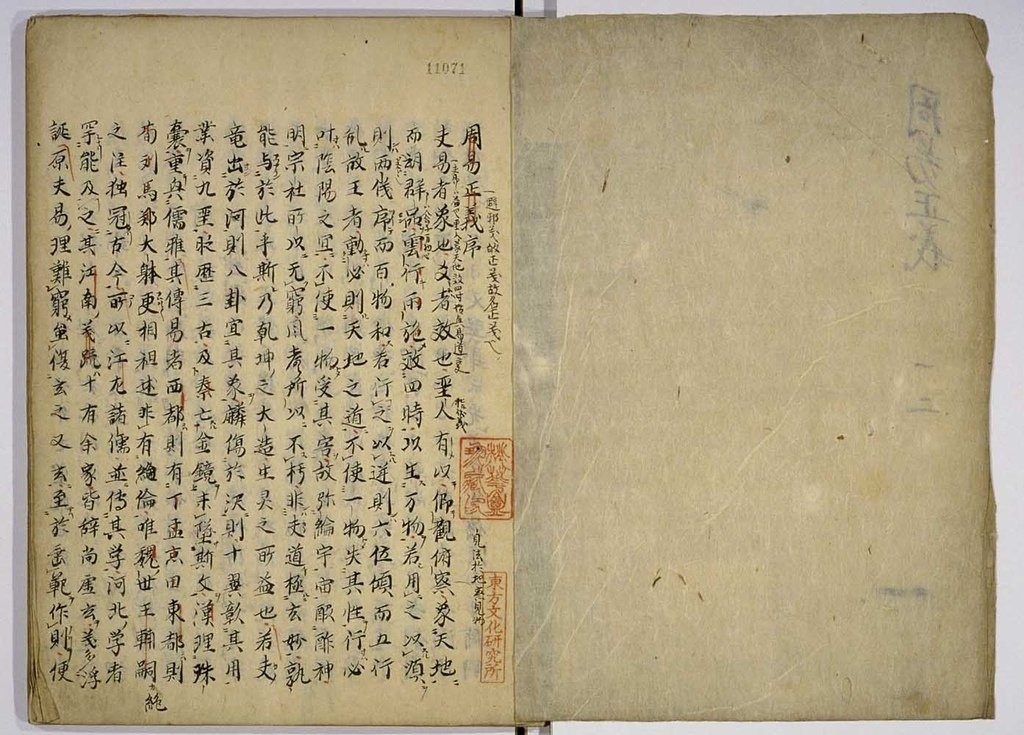 11071
周易正義
一二
周易正義序
夫易者象也爻者效也聖人有以仰觀俯察象天地
而群品雲行雨施效四時以生万物若用之以順
則兩儀序而百物和若行之以逆則六位傾而五行
乱故王者動必則天地之道不使一物失其性行必
叶陰陽之宜不使一物受其害故弥綸宇宙酬酢神
明宗社所以无窮風声所以不朽非夫道極玄妙孰
能与於此乎斯乃乾坤之大造生灵之所益也若夫
竜出於河則八卦宣其象麟傷於沢則十翼彰其用
業資九聖時歴三古及秦亡金鏡未墜斯文漢理珠
嚢重興儒雅其傳易者西都則有丁孟京田東都則
荀刘馬鄭大躰更相祖述非有絶倫唯魏世王輔嗣
之注独冠古今所以江左諸儒並傳其学河北学者
罕能及之其江南義疏十有余家皆辞尚虚玄義多浮
誕原夫易理難窮虽復玄之又玄至於垂範作則便
絶
東方文化研究所